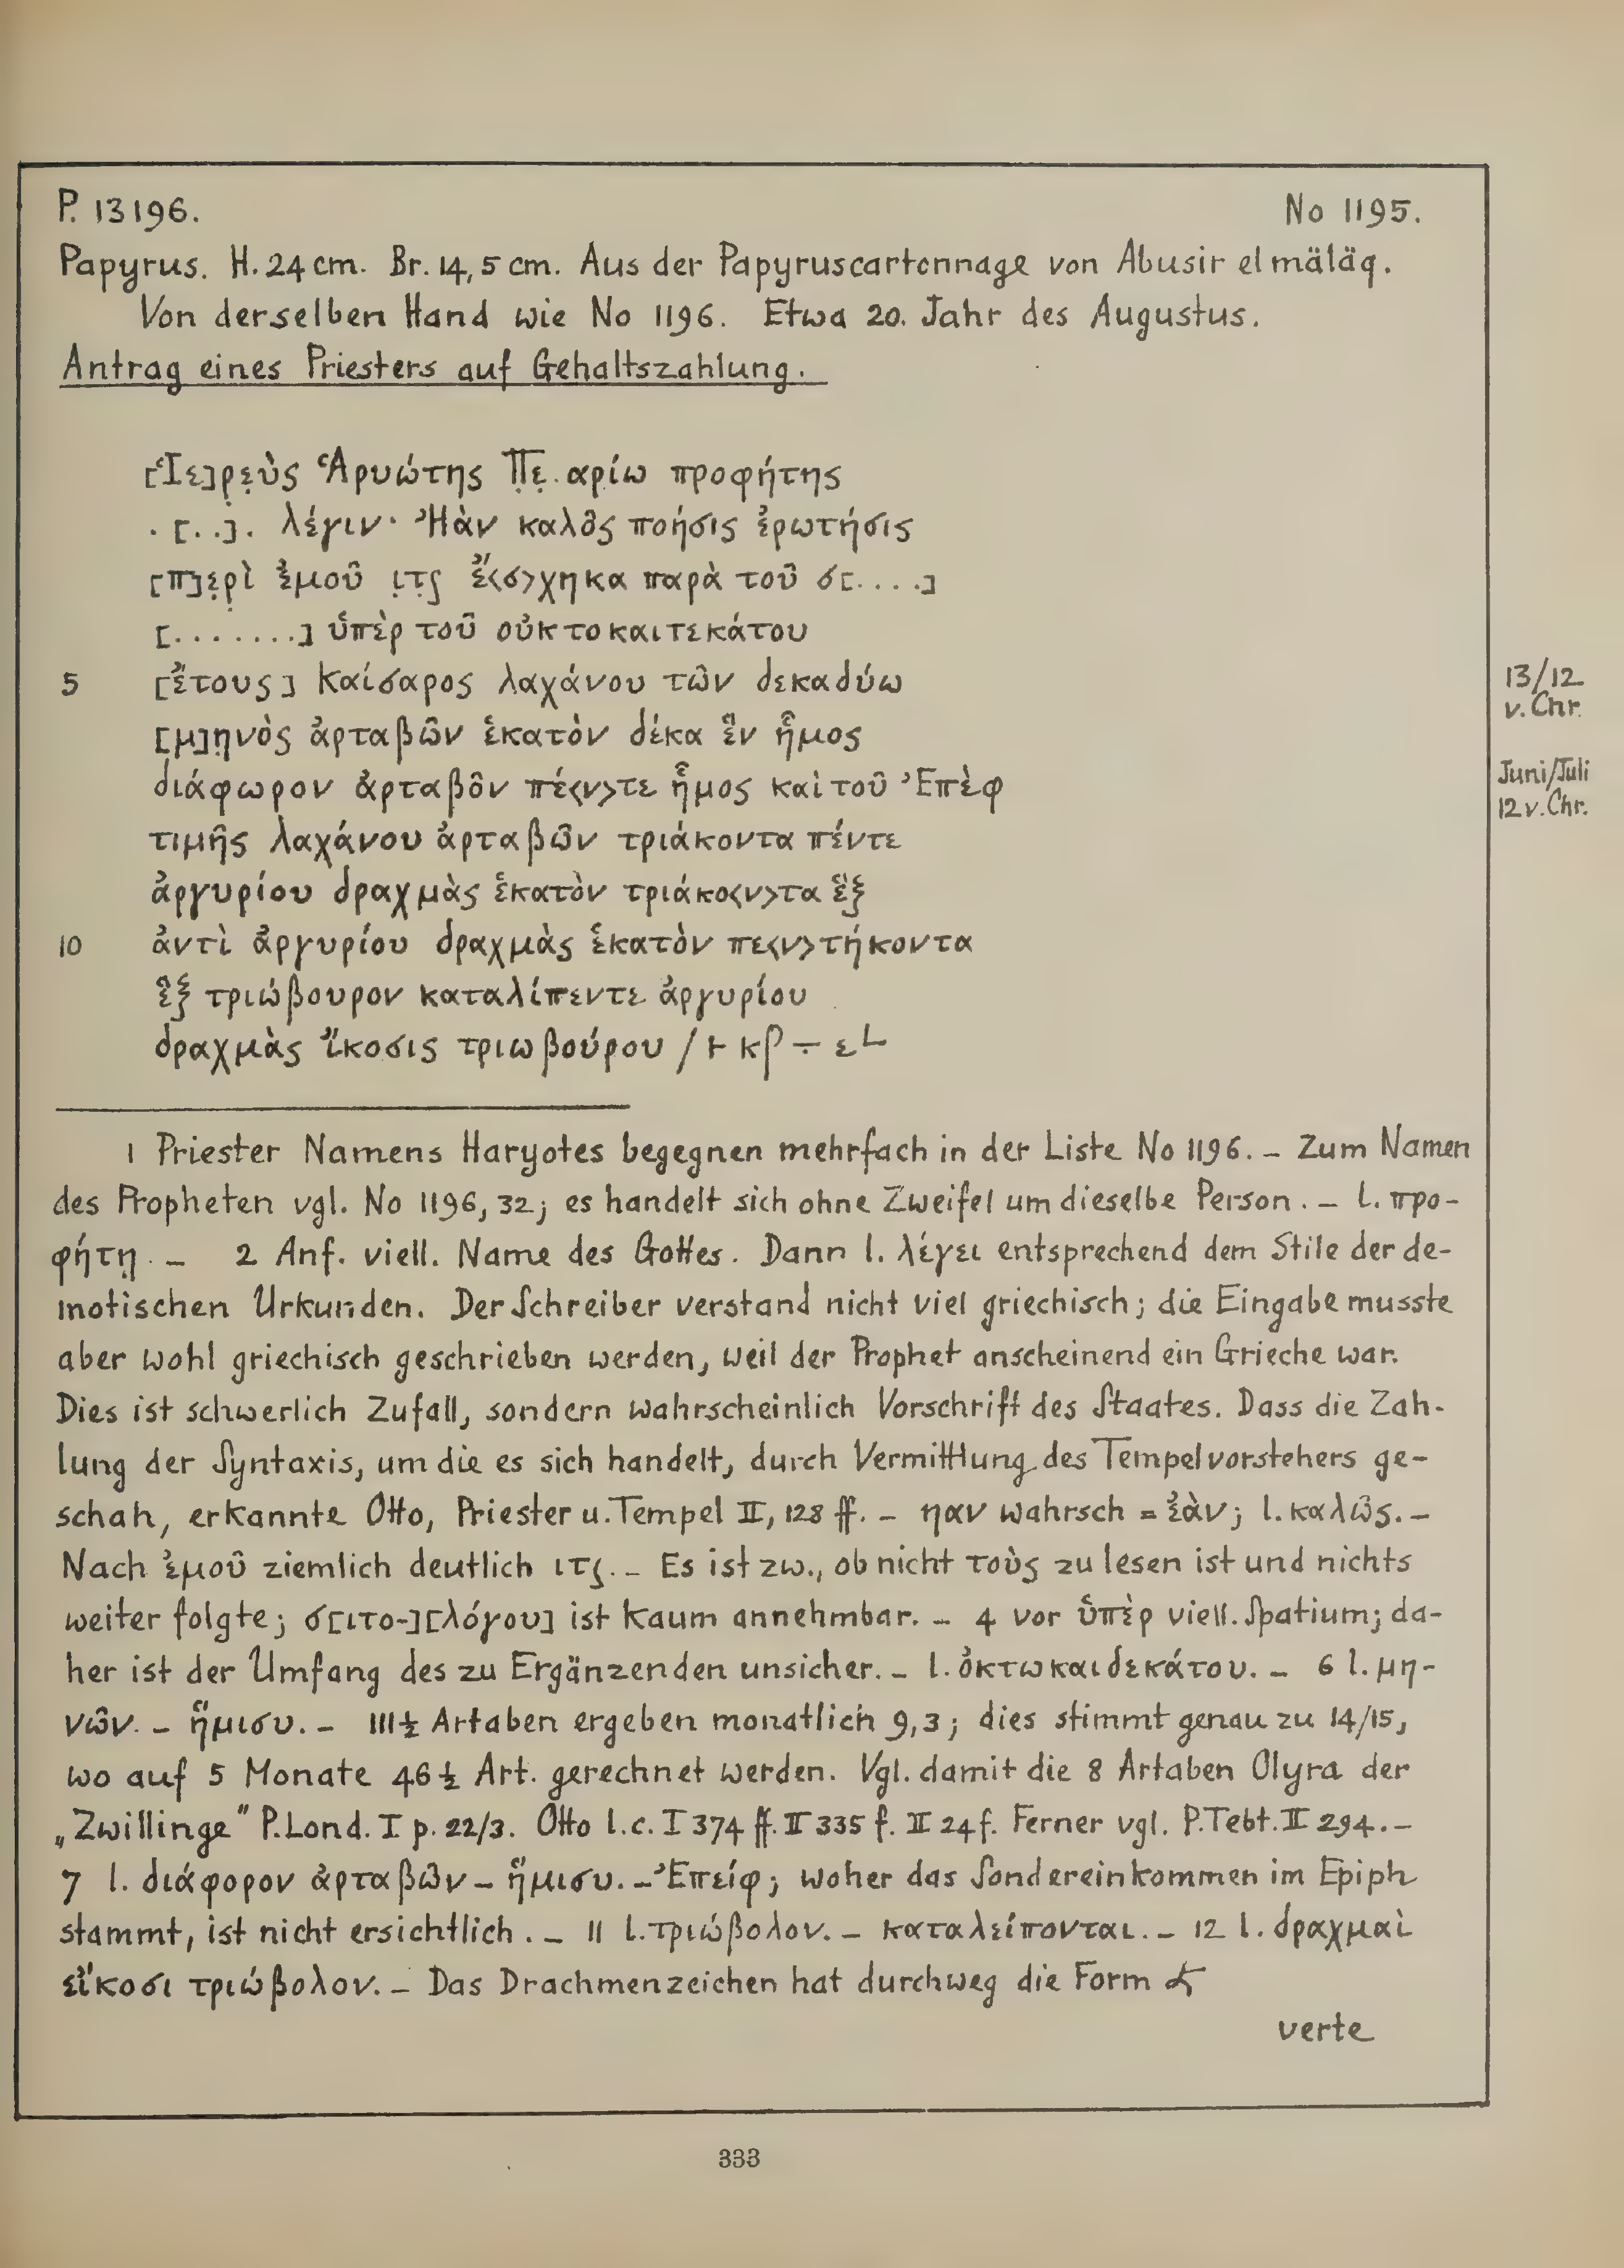 P. 13196. No 1195.
Papyrus. H. 24 cm. Br. 14,5 cm. Aus der Papyruscartonnage von Abusir el mäläq.
Von derselben Hand wie No 1196. Etwa 20. Jahr des Augustus.
Antrag eines Priesters auf Gehaltszahlung.
[Ἱε]ρ̣ε̣ὺς Ἁρυώτης Π̣ε̣.αρίω προφήτης
.[..]. λέγιν· Ἠὰν καλο͂ς ποήσις ἐρωτήσις
[π]ε̣ρ̣ὶ ἐμοῦ ι̣τ̣ς ἔ<σ>χηκα παρὰ τοῦ σ[....]
[.......] ὑπὲρ τοῦ οὐκτοκαιτεκάτου
5 [ἔτους] Καίσαρος λαχάνου τῶν δεκαδύω
13/12
v. Chr.
[μ]η̣νὸς ἀρταβῶν ἑκατὸν δέκα ἓν ἧμος
διάφωρον ἀρταβο͂ν πέ<ν>τε ἧμος καὶ τοῦ Ἐπὲφ
Juni/Juli
12 v. Chr.
τιμῆς λαχάνου ἀρταβῶν τριάκοντα πέντε
ἀργυρίου δραχμὰς ἑκατὸν τριάκο<ν>τα ἓξ
10 ἀντὶ ἀργυρίου δραχμὰς ἑκατὸν πε<ν>τήκοντα
ἓξ τριώβουρον καταλίπεντε ἀργυρίου
δραχμὰς ἴκοσις τριωβούρου / 𐅂 κβ ÷ ε∟
1 Priester Namens Haryotes begegnen mehrfach in der Liste No 1196. – Zum Namen
des Propheten vgl. No 1196, 32; es handelt sich ohne Zweifel um dieselbe Person. – l. προ-
φήτῃ. – 2 Anf. viell. Name des Gottes. Dann l. λέγει entsprechend dem Stile der de-
motischen Urkunden. Der Schreiber verstand nicht viel griechisch; die Eingabe musste
aber wohl griechisch geschrieben werden, weil der Prophet anscheinend ein Grieche war.
Dies ist schwerlich Zufall, sondern wahrscheinlich Vorschrift des Staates. Dass die Zah-
lung der Syntaxis, um die es sich handelt, durch Vermittlung des Tempelvorstehers ge-
schah, erkannte Otto, Priester u. Tempel II, 128 ff. – ηαν wahrsch = ἐὰν; l. καλῶς. –
Nach ἐμοῦ ziemlich deutlich ιτς. – Es ist zw., ob nicht τοὺς zu lesen ist und nichts
weiter folgte; σ[ιτο-][λόγου] ist kaum annehmbar. – 4 vor ὑπὲρ viell. Spatium; da-
her ist der Umfang des zu Ergänzenden unsicher. – l. ὀκτωκαιδεκάτου. – 6 l. μη-
νῶν. – ἥμισυ. – 111½ Artaben ergeben monatlich 9,3; dies stimmt genau zu 14/15,
wo auf 5 Monate 46½ Art. gerechnet werden. Vgl. damit die 8 Artaben Olyra der
„Zwillinge" P. Lond. I p. 22/3. Otto l. c. I 374 ff. II 335 f. II 24 f. Ferner vgl. P. Tebt. II 294. –
7 l. διάφορον ἀρταβῶν – ἥμισυ. – Ἐπείφ; woher das Sondereinkommen im Epiph
stammt, ist nicht ersichtlich. – 11 l. τριώβολον. – καταλείπονται. – 12 l. δραχμαὶ
εἴκοσι τριώβολον. – Das Drachmenzeichen hat durchweg die Form
verte
333